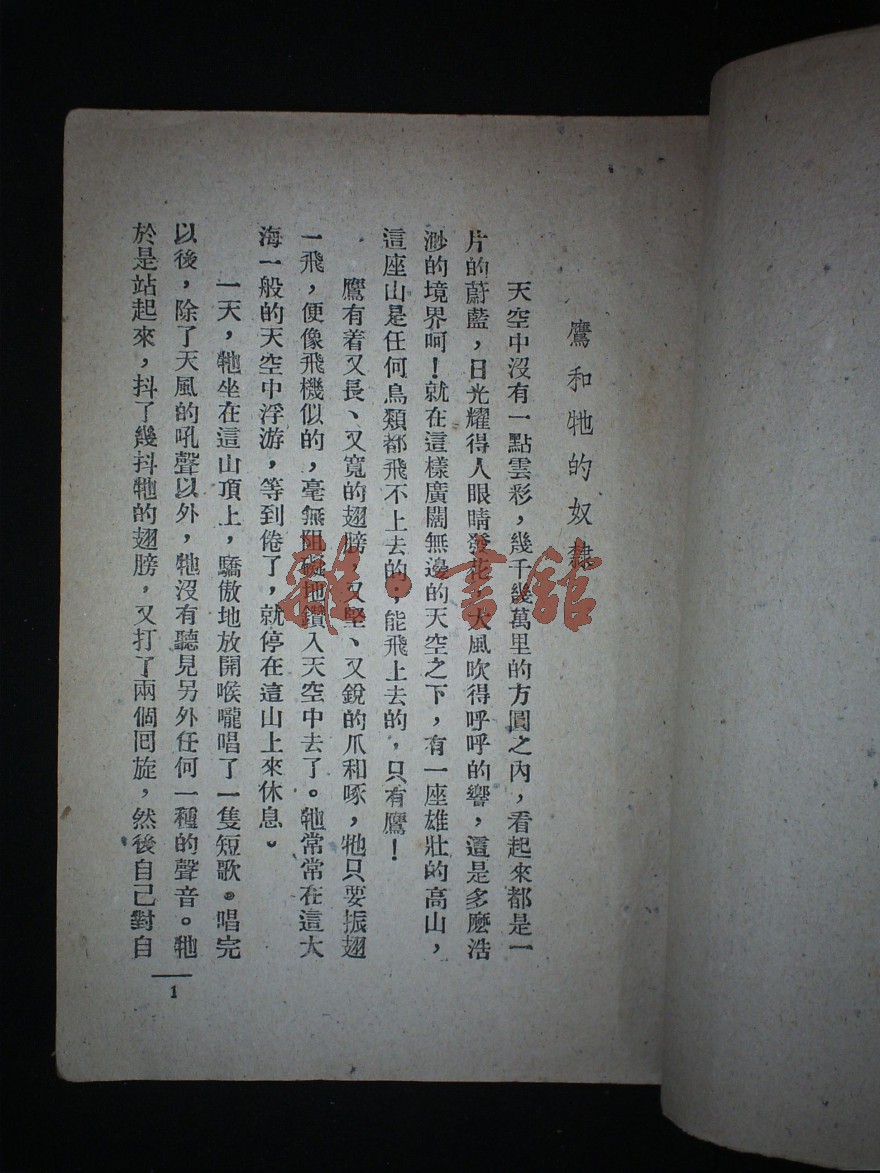 鷹和牠的奴隸
天空中沒有一點雲彩，幾千幾萬里的方圓之內，看起來都是一
片的蔚藍，日光耀得人眼睛發花，大風吹得呼呼的響，這是多麼浩
渺的境界呵！就在這樣廣闊無邊的天空之下，有一座雄壯的高山，
這座山是任何鳥類都飛不上去的，能飛上去的，只有鷹！
鷹有着又長、又寬的翅膀，又堅、又銳的爪和啄，牠只要振翅
一飛，便像飛機似的，毫無阻礙地鑽入天空中去了。牠常常在這大
海一般的天空中浮游，等到倦了，就停在這山上來休息。
一天，牠坐在這山頂上，驕傲地放開喉嚨唱了一隻短歌。唱完
以後，除了天風的吼聲以外，牠沒有聽見另外任何一種的聲音。牠
於是站起來，抖了幾抖牠的翅膀，又打了兩個囘旋，然後自己對自
1
雜·書館